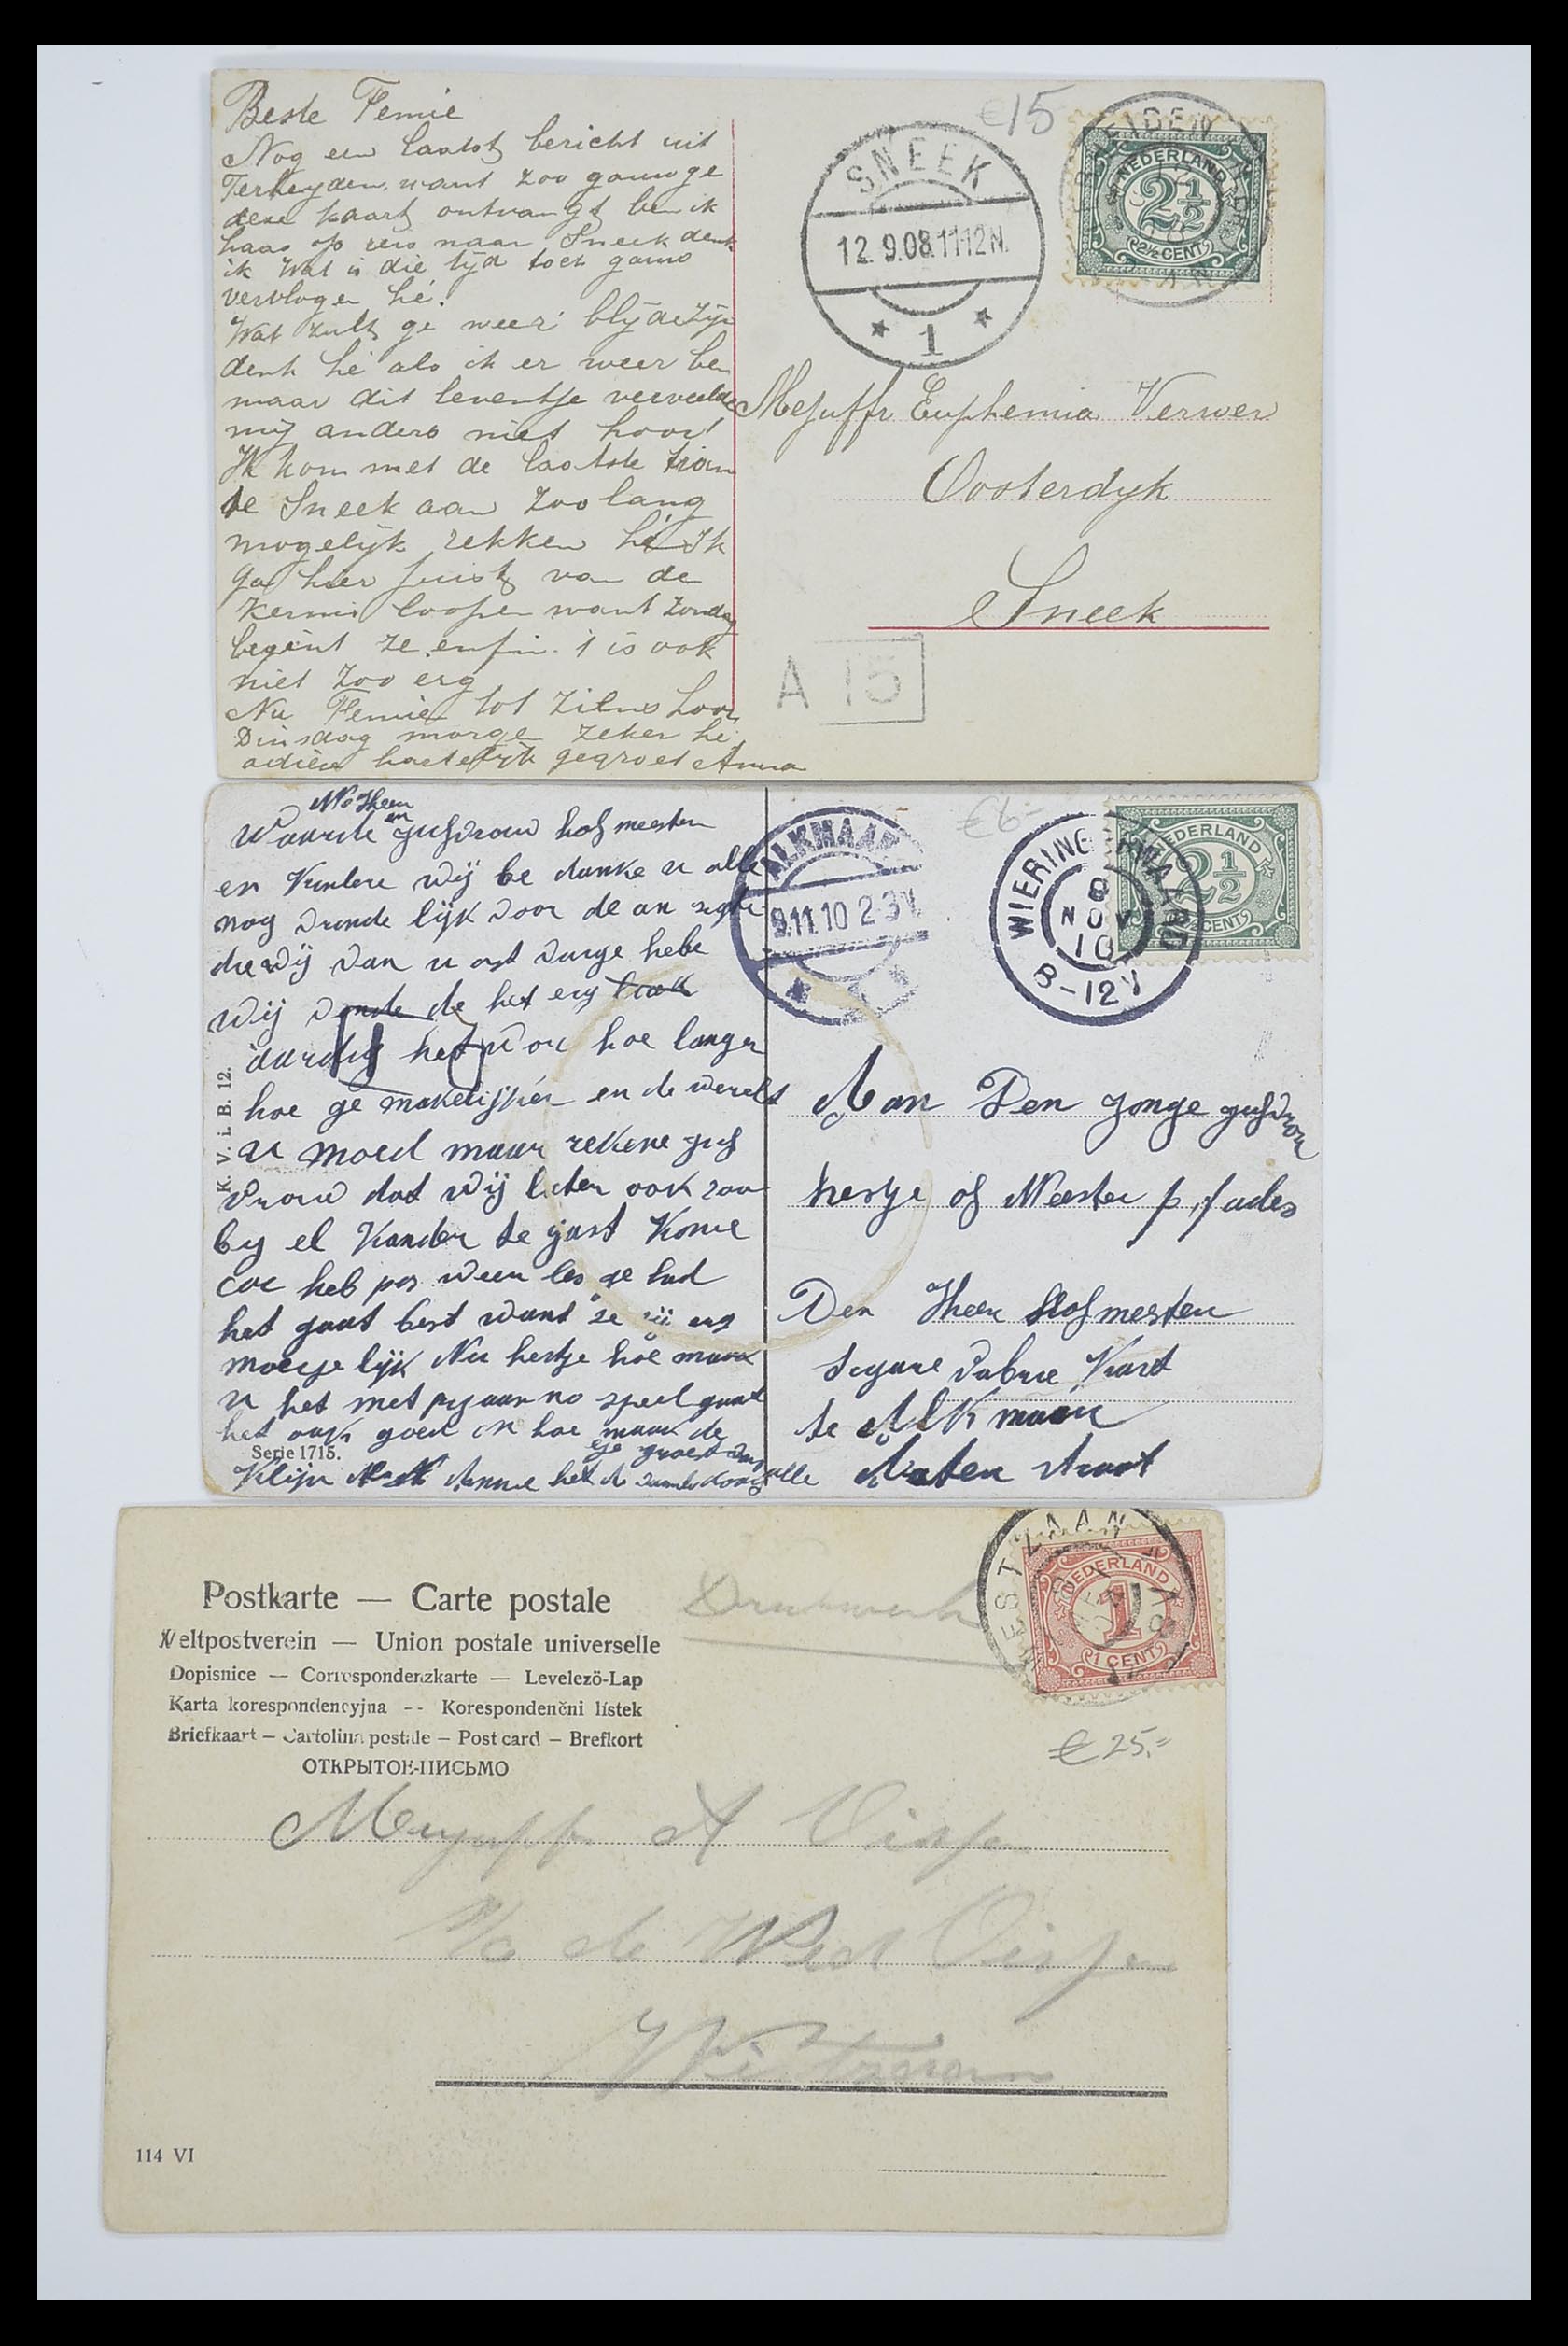 Beste Femie
Nog een laatst bericht uit
Terheyden. want zoo gauw ge
deze kaart ontvangt ben ik
haas op reis naar Sneek denk
ik Wat is die tijd toch gauw
vervlogen hé.
Wat zult ge weer blijde zijn
denk hé als ik er weer ben
maar dit leventje verveelde
mij anders niet hoor!
Ik kom met de laatste tram
te Sneek aan zoo lang
mogelijk rekken hé Ik
ga hier juist van de
kermis loopen want Zondag
begint ze enfin. 't is ook
niet zoo erg
Nu Femie tot ziens hoor
Dinsdag morgen zeker hé
adieu hartelijk gegroet Anna
€15
SNEEK
12. 9.08.11-12N.
1
NEDERLAND
2½
2½ CENT
Mejuffr Euphemia Verwer
Oosterdyk
Sneek
A 15
Mr Heer
en
Waarde jufvrouw hofmeester
en kindere wij be danke u alle
nog vrinde lijk voor de an
die wij van u ont vange hebe
wij de het erg
aardig het hoe langer
hoe ge makelijker en de
u moed maar rekene juf
vrouw dat wij later ook zoo
by el kander te gast kome
coe heb pas weer les ge had
het gaat best want ze zij erg
moeije lijk Nu hertje hoe maak
u het met pyaano speel gaat
het ook goed en hoe maak de
klijn Annie het de
alle
K. V. i. B. 12.
Serie 1715.
ALKMAAR
9.11.10 2-3N
€6-
WIERINGERWAARD
9
NOV
10
8-12V
NEDERLAND
2½
CENT
Aan Den Jonge jufvrou
hertje of Meester
Den Heer Hofmeester
Sigare Vabrie Kant
te Alkmaar
straat
Postkarte — Carte postale
Weltpostverein — Union postale universelle
Dopisnice — Correspondenzkarte — Levelező-Lap
Karta korespondencyjna -- Korespondenčni lístek
Briefkaart — Cartolina postale — Post card — Brefkort
ОТКРЫТОЕ-ПИСЬМО
Drukwerk
WESTZAAN
NEDERLAND
1
1 CENT
€ 25.=
Mejuffr A Visser
de Wed Visser
114 VI